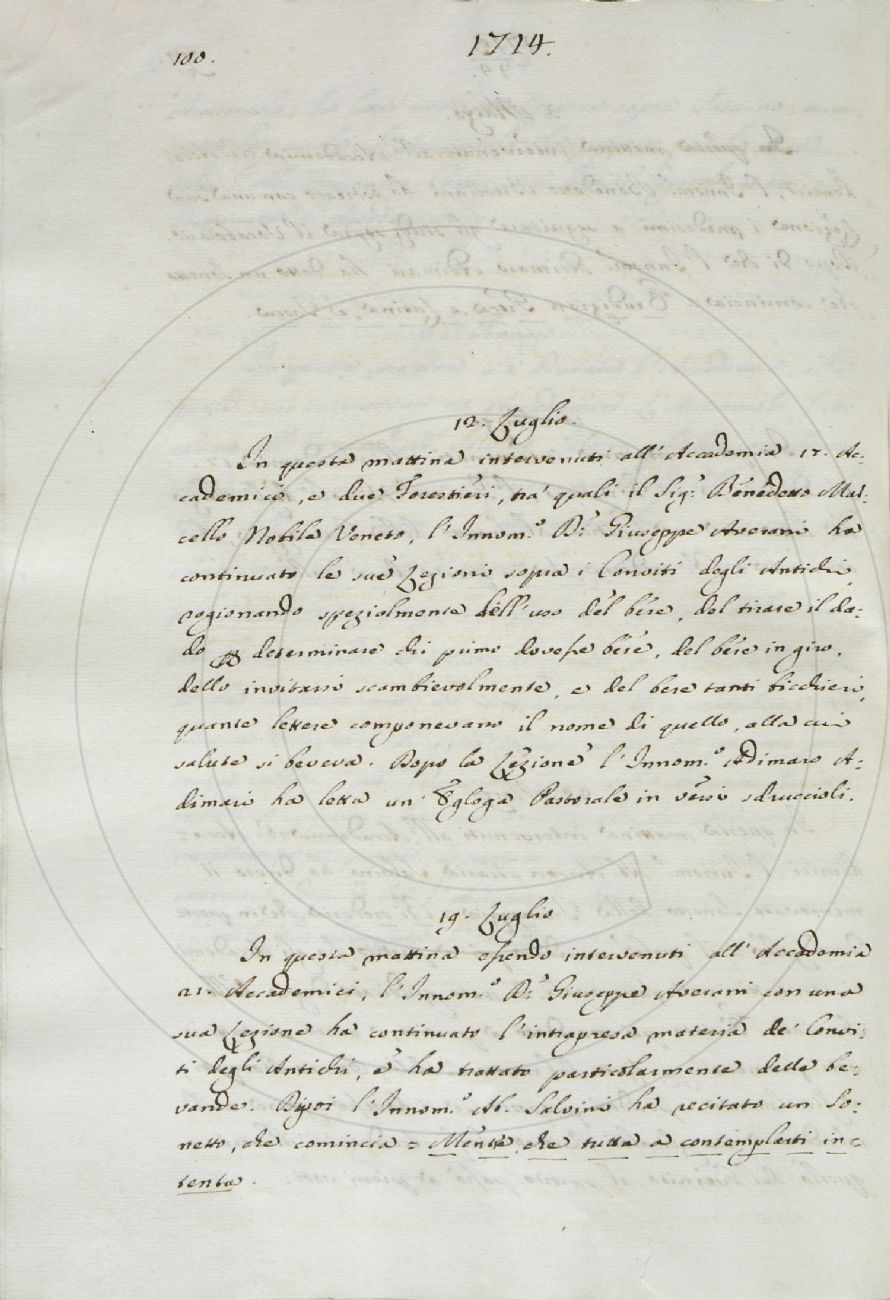 100.
1714.
12. Luglio.
In questa mattina intervenuti all'Accademia 15. Ac-
cademici, e due Forestieri, tra' quali il Sig.r Benedetto Mar-
cello Nobile Veneto, l'Innom.o D.r Giuseppe Averani ha
continuato le sue Lezioni sopra i Conviti degli Antichi
ragionando spezialmente dell'uso del bere, del tirare il da-
do p determinare chi primo dovesse bere, del bere in giro,
dello invitarsi scambievolmente, e del bere tanti bicchieri,
quante lettere componevano il nome di quello, alla cui
salute si beveva. Dopo la Lezione l'Innom.o Adimaro A-
dimari ha letta un'Egloga Pastorale in versi sdruccioli.
19. Luglio
In questa mattina essendo intervenuti all'Accademia
21. Accademici, l'Innom.o D.r Giuseppe Averani con una
sua Lezione ha continuato l'intrapresa materia de' Convi-
ti degli Antichi, e ha trattato particolarmente delle be-
vande. Dipoi l'Innom.o Ab. Salvini ha recitato un So-
netto, che comincia = Mente, che tutta a contemplarti in-
tenta.